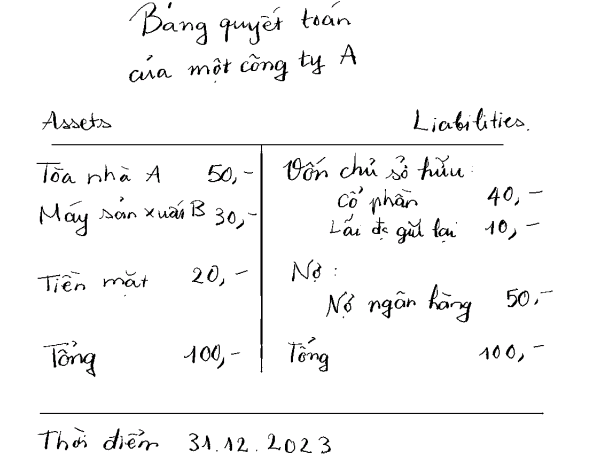 Bảng quyết toán
của một công ty A
Assets Liabilities.
Tòa nhà A 50,- Vốn chủ sở hữu:
Cổ phần 40,-
Máy sản xuất B 30,- Lãi đc giữ lại 10,-
Tiền mặt 20,- Nợ:
Nợ ngân hàng 50,-
Tổng 100,- Tổng 100,-
Thời điểm 31.12.2023